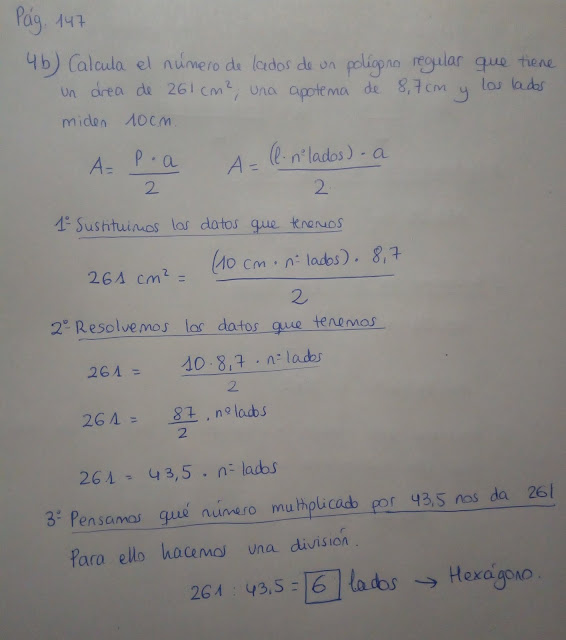 Pág. 147
4b) Calcula el número de lados de un polígono regular que tiene
un área de 261 cm², una apotema de 8,7cm y los lados
miden 10cm.
A = P · a / 2    A = (l · nº lados) · a / 2
1º Sustituimos los datos que tenemos
261 cm² = (10 cm · nº lados) · 8,7 / 2
2º Resolvemos los datos que tenemos
261 = 10 · 8,7 · nº lados / 2
261 = 87 / 2 · nº lados
261 = 43,5 · nº lados
3º Pensamos qué número multiplicado por 43,5 nos da 261
Para ello hacemos una división.
261 : 43,5 = 6 lados → Hexágono.